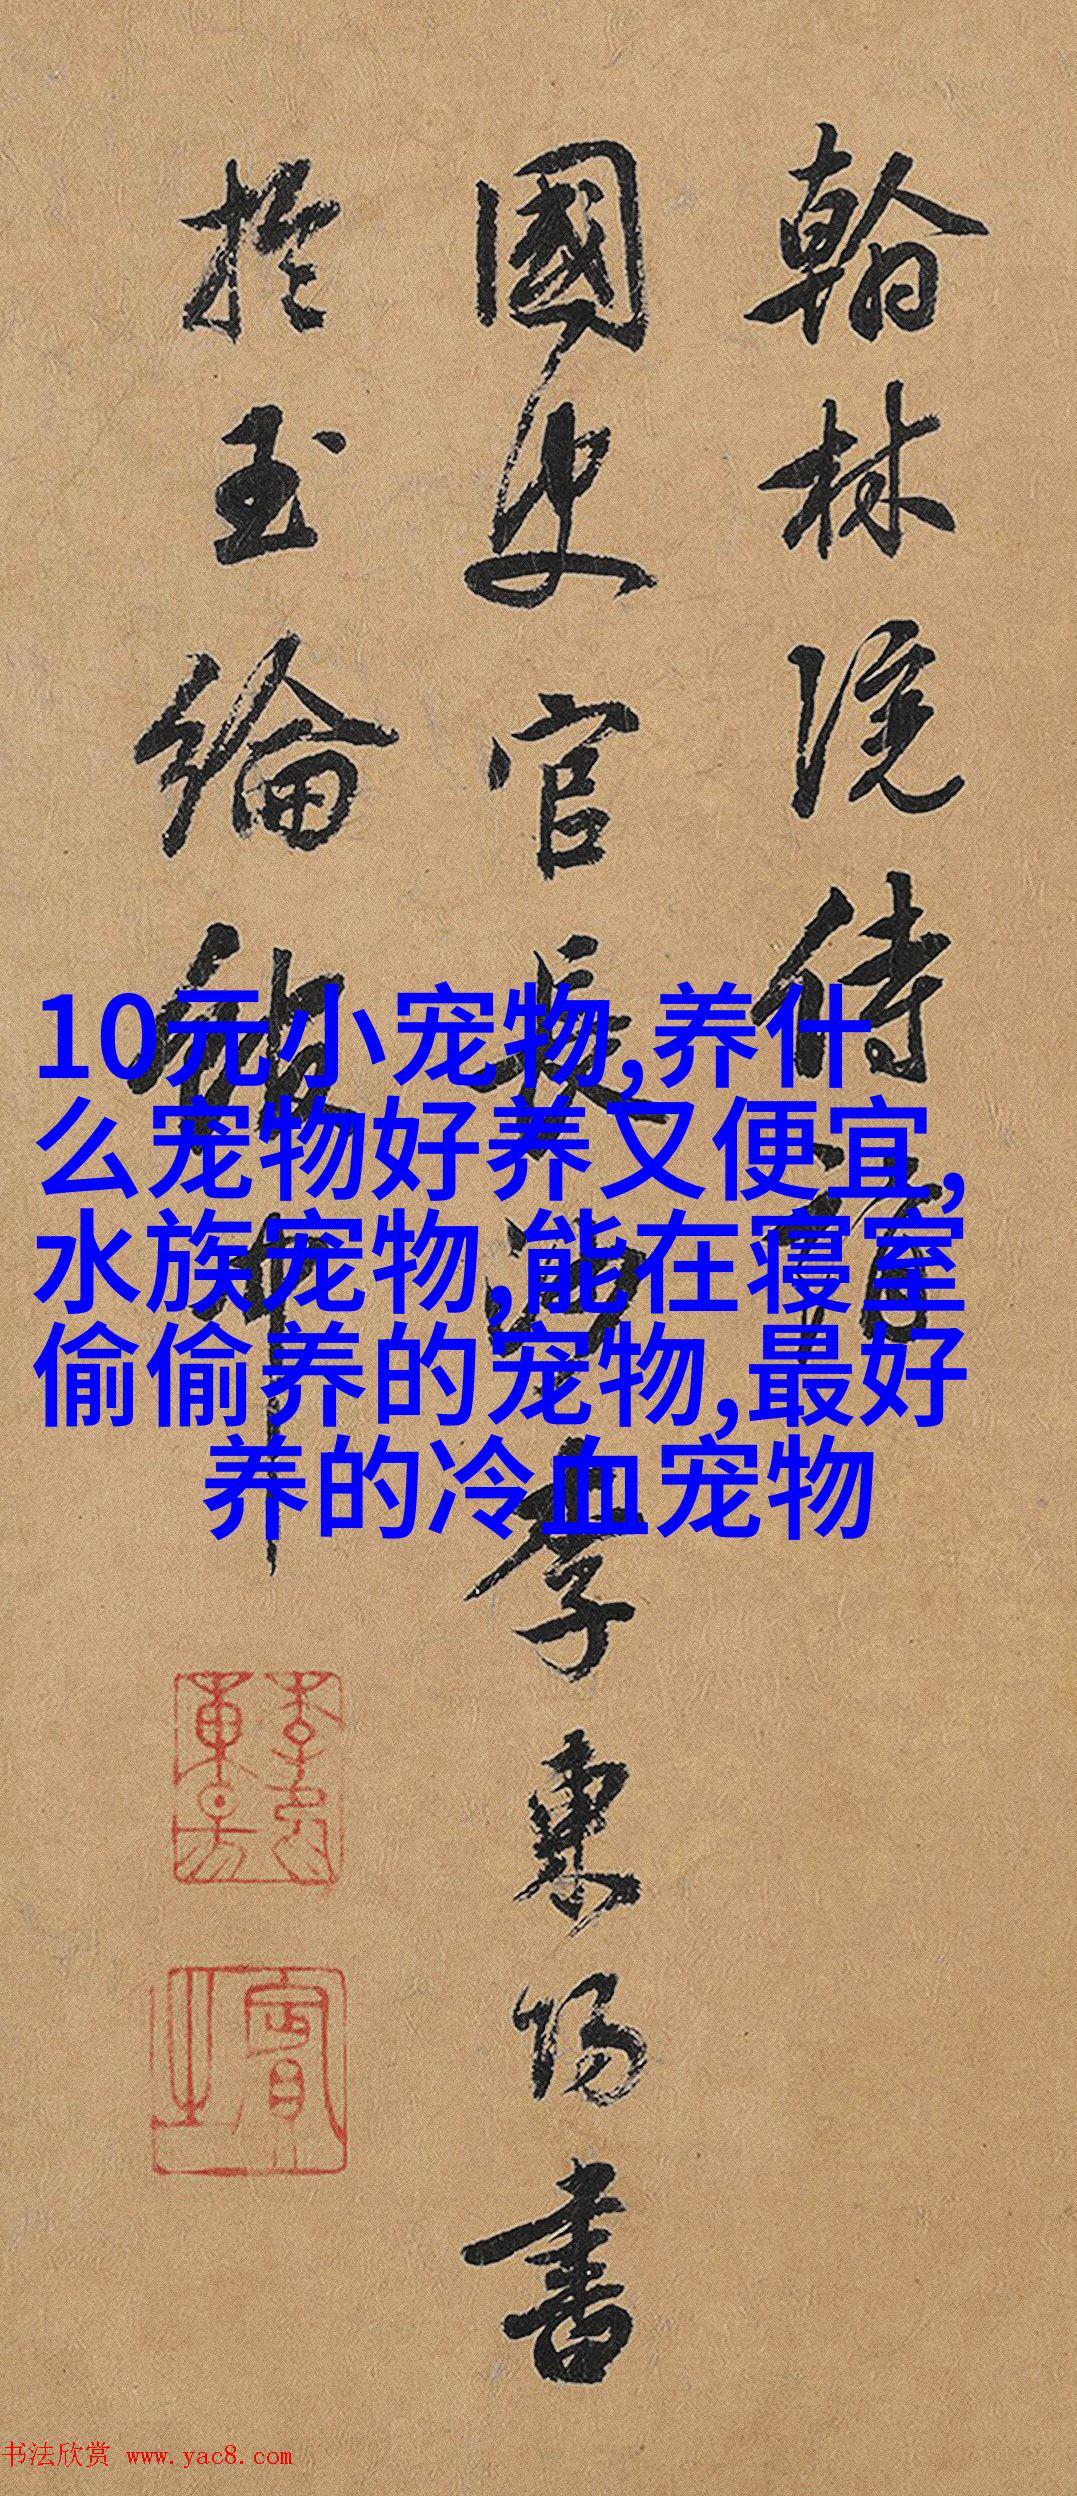 翰林院侍
國史官長沙李東陽書
於玉綸中
10元小宠物,养什
么宠物好养又便宜,
水族宠物,能在寝室
偷偷养的宠物,最好
养的冷血宠物
賓之
书法欣赏 www.yac8.com